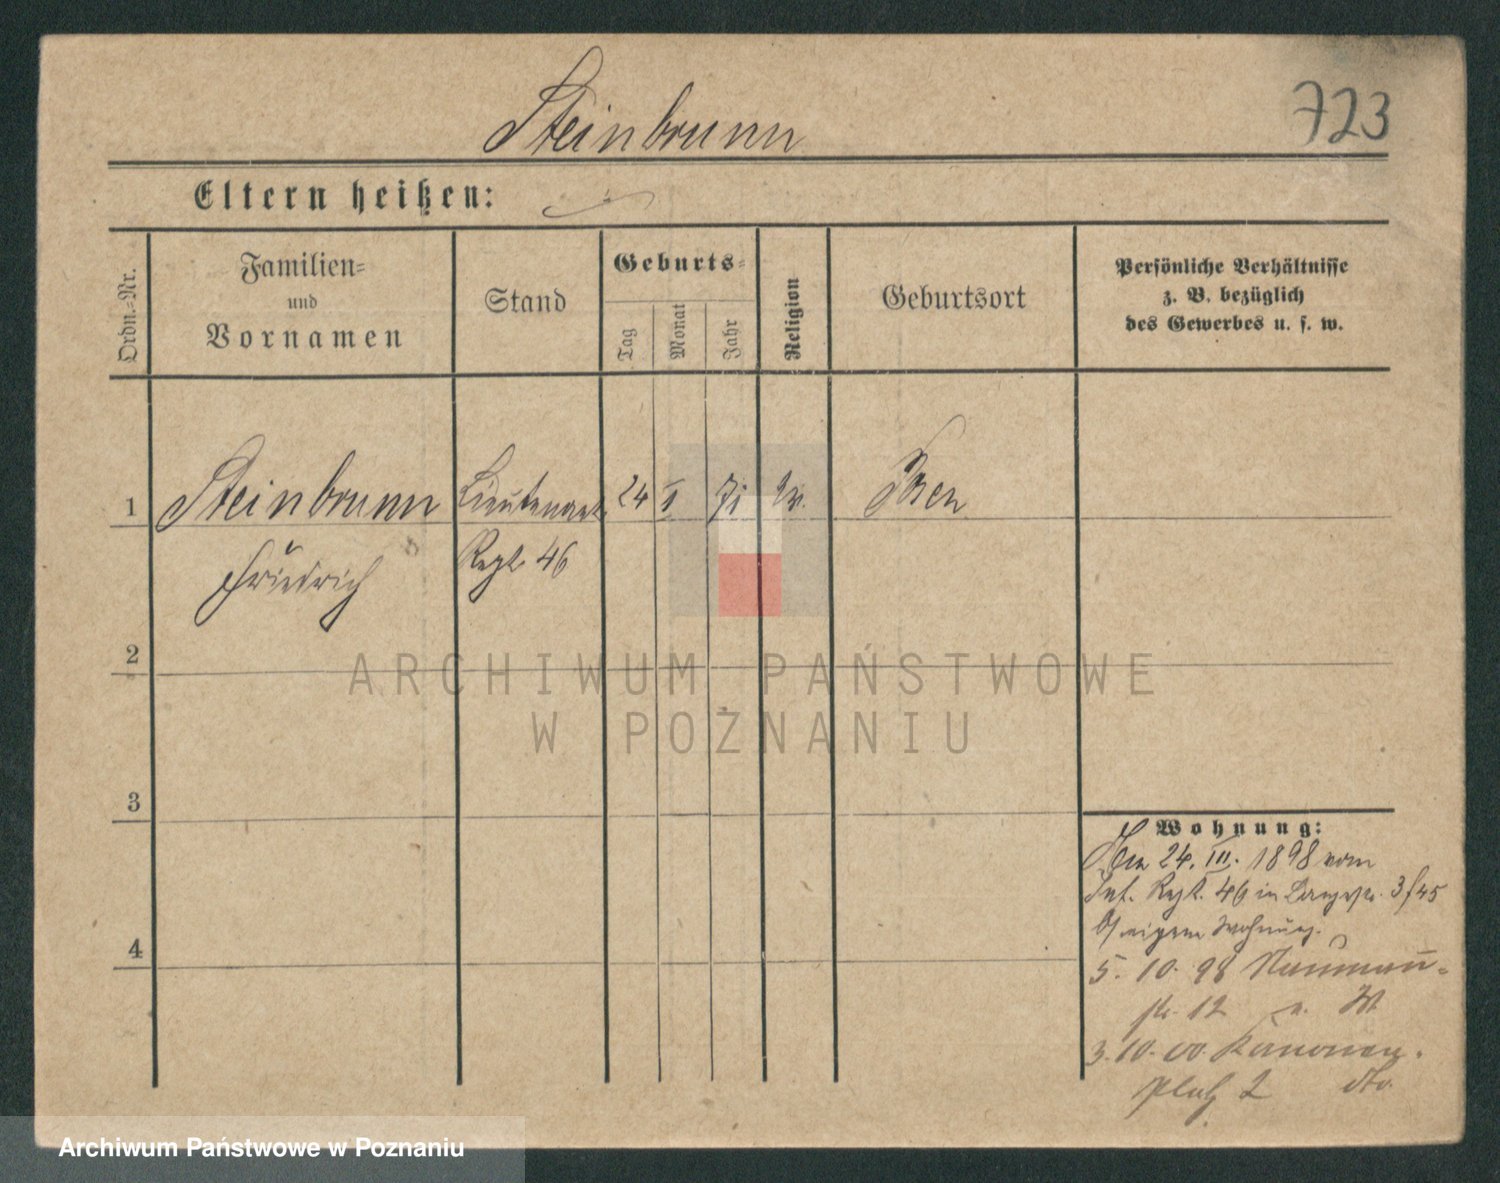 Steinbrunn
723
Eltern heißen:
Ordn.-Nr.
Familien-
und
Vornamen
Stand
Geburts-
Tag
Monat
Jahr
Religion
Geburtsort
Persönliche Verhältnisse
z. B. bezüglich
des Gewerbes u. s. w.
1
Steinbrunn
Lieutenant
24
I
71
Ev.
Posen
Friedrich
Regt. 46
2
ARCHIWUM PAŃSTWOWE
W POZNANIU
3
Wohnung:
24. III. 1898 vom
Inf. Regt. 46 in 3/45
eigene Wohnung.
4
5. 10. 98 Naumann-
str. 12 e. W
3. 10. 00. Kanonen-
platz 2 dto.
Archiwum Państwowe w Poznaniu